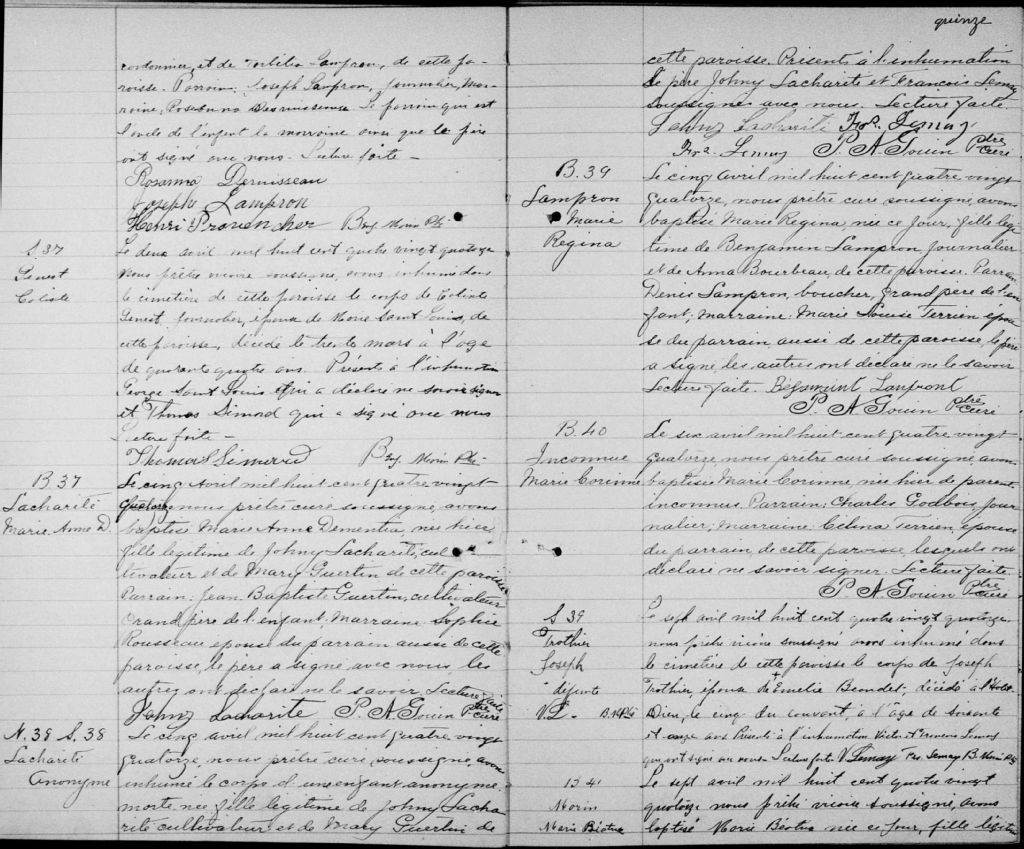 cordonnier, et de Lampron, de cette pa-
roisse. Parrain, Joseph Lampron, journalier, Mar-
raine, Rosanna Dernisseau. Le parrain qui est
l'oncle de l'enfant la marraine ainsi que le père
ont signé avec nous. Lecture faite –
Rosanna Dernisseau
Joseph Lampron
Henri Provencher Benj. Morin Ptr.
S. 37
Genest
Coliste
Le deux avril mil huit cent quatre vingt quatorze
nous prêtre vicaire soussigné, avons inhumé dans
le cimetière de cette paroisse le corps de
Genest, journalier, époux de Marie Saint Louis, de
cette paroisse, décédé le trente mars à l'âge
de quarante quatre ans. Présents à l'inhumation
George Saint Louis qui a déclaré ne savoir signer
et Thomas Simard qui a signé avec nous
Lecture faite –
Thomas Simard Benj. Morin Ptr.
B 37
Lacharité
Marie. Anne D.
Le cinq Avril mil huit cent quatre vingt
quatorze nous prêtre curé soussigné, avons
baptisé Marie Anne Dementie, née hier
fille legitime de Johny Lacharité, cul
tivateur et de Mary Guertin de cette paroisse
Parrain: Jean Baptiste Guertin, cultivateur
Grand père de l'enfant: Marraine Sophie
Rousseau epouse du parrain aussi de cette
paroisse, le père a signé avec nous, les
autres ont déclaré ne le savoir, Lecture faite
Johny Lacharité P. A Gouin Ptre Curé
N. 38 S. 38
Lacharité
Anonyme
Le cinq avril mil huit cent quatre vingt
quatorze, nous prêtre curé, soussigné, avons
inhumé le corps d'une enfant anonyme
morte née fille legitime de Johny Lacha
rité cultivateur et de Mary Guertin de
quinze
cette paroisse. Présents à l'inhumation
le père Johny Lacharité et Francois Lemay
soussignés avec nous. Lecture faite
Johny Lacharité Frs. Lemay
Frs. Lemay P. A Gouin Ptre Curé
B. 39
Lampron
Marie
Regina
Le cinq Avril mil huit cent quatre vingt
quatorze, nous prêtre curé soussigné, avons
baptisé Marie Regina, née ce jour, fille legi
time de Benjamen Lampron, journalier
et de Anna Bourbeau, de cette paroisse. Parrain
Denis Lampron, boucher, grand père de l'en
fant, Marraine: Marie Louise Terrien epou
se du parrain, aussi de cette paroisse, le père
a signé, les autres ont déclaré ne le savoir
Lecture faite. Lanfront
P. A Gouin Ptre Curé
B. 40
Inconnue
Marie Corinne
Le six avril mil huit cent quatre vingt
quatorze, nous prêtre curé soussigné, avons
baptisé Marie Corinne, née hier de parents
inconnus. Parrain: Charles Godbois, jour
nalier; Marraine: Celina Terrien, épouse
du parrain, de cette paroisse, lesquels ont
déclaré ne savoir signer. Lecture faite
P. A Gouin Ptre Curé
S 39
Trothier
Joseph
V. L. B. M. Ptr
Le sept avril mil huit cent quatre vingt quatorze
nous prêtre vicaire soussigné avons inhumé dans
le cimetière de cette paroisse le corps de Joseph
Trothier, époux de Emélie Beaudet, décédé à l'Hotel
Dieu, le cinq du courant, à l'âge de soixante
et onze ans Présents à l'inhumation Victor et Francois Lemay
qui ont signé avec nous Lecture faite V Lemay Frs. Lemay B. Morin Ptr
B 41
Morin
Marie Béatrice
Le sept avril mil huit cent quatre vingt
quatorze nous prêtre vicaire soussigné, avons
baptisé Marie Béatrice née ce jour, fille légitime